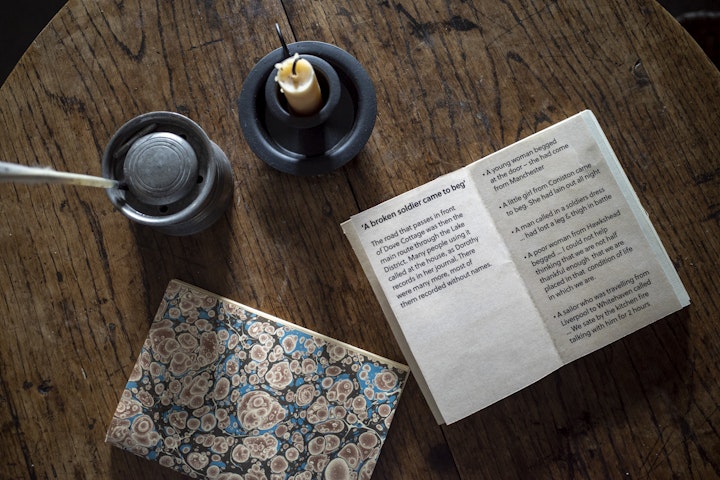 'A broken soldier came to beg'
The road that passes in front
of Dove Cottage was then the
main route through the Lake
District. Many people using it
called at the house, as Dorothy
records in her journal. There
were many more, most of
them recorded without names.
• A young woman begged
at the door – she had come
from Manchester
• A little girl from Coniston came
to beg. She had lain out all night
• A man called in a soldiers dress
– had lost a leg & thigh in battle
• A poor woman from Hawkshead
begged ... I could not help
thinking that we are not half
thankful enough, that we are
placed in that condition of life
in which we are.
• A sailor who was travelling from
Liverpool to Whitehaven called
... We sate by the kitchen fire
talking with him for 2 hours